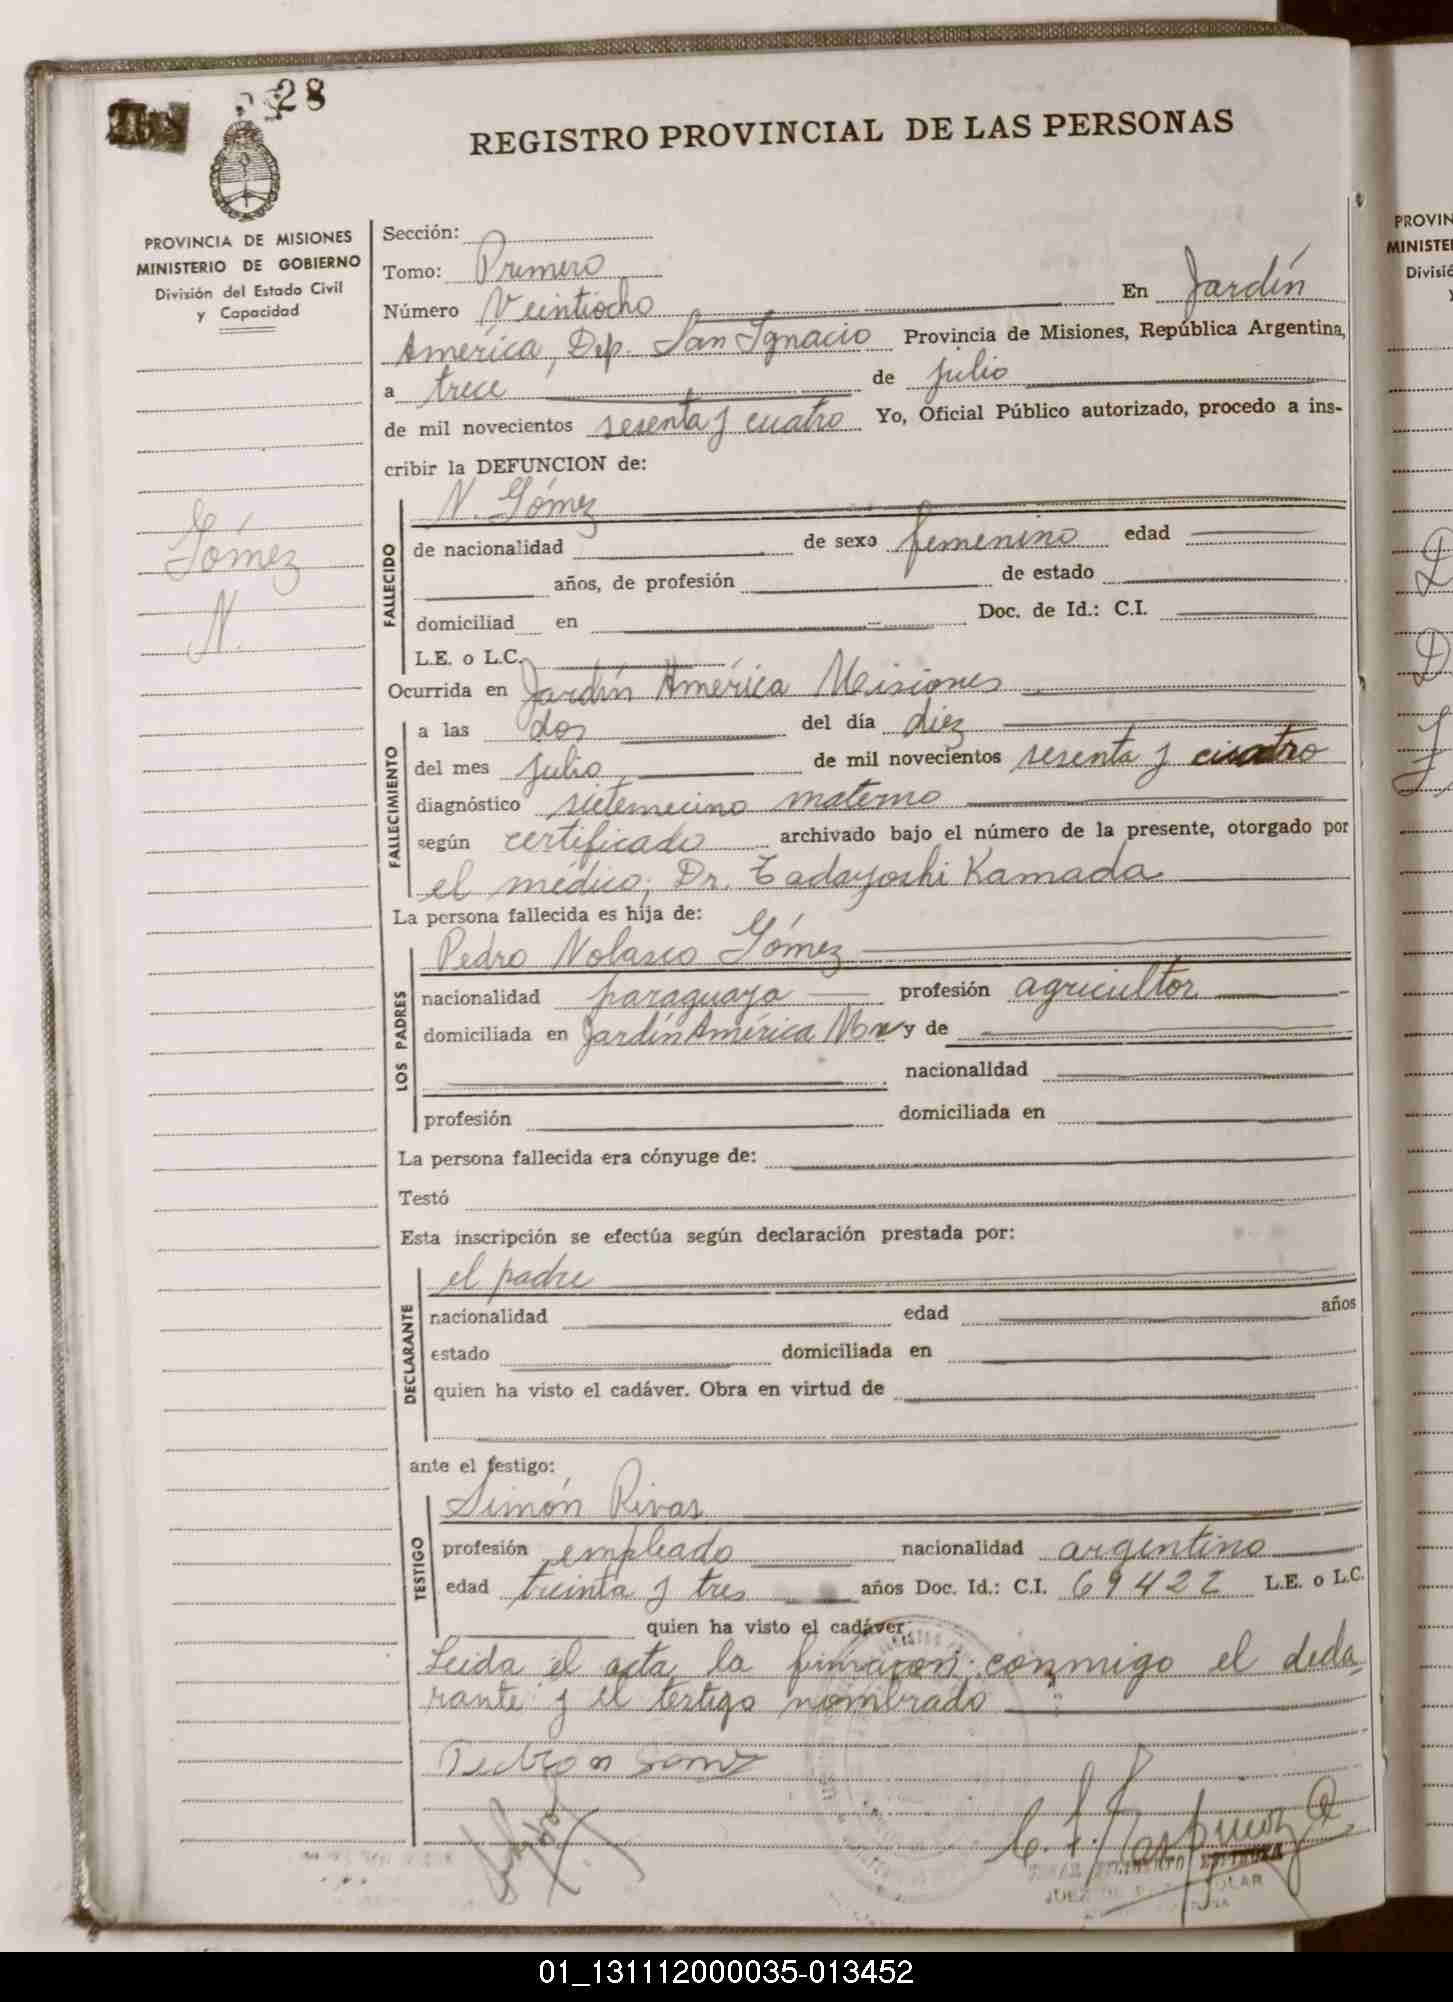 28
REGISTRO PROVINCIAL DE LAS PERSONAS
PROVINCIA DE MISIONES
MINISTERIO DE GOBIERNO
División del Estado Civil
y Capacidad
Gómez
N.
Sección:
Tomo: Primero
Número Veintiocho En Jardín
América, Dep. San Ignacio Provincia de Misiones, República Argentina,
a trece de julio
de mil novecientos sesenta y cuatro Yo, Oficial Público autorizado, procedo a ins-
cribir la DEFUNCION de:
FALLECIDO
N. Gómez
de nacionalidad de sexo femenino edad
años, de profesión de estado
domiciliad en Doc. de Id.: C.I.
L.E. o L.C.
Ocurrida en Jardín América Misiones
FALLECIMIENTO
a las dos del día diez
del mes julio de mil novecientos sesenta y cuatro
diagnóstico sietemecino materno
según certificado archivado bajo el número de la presente, otorgado por
el médico, Dr. Tadayoshi Kamada
La persona fallecida es hija de:
LOS PADRES
Pedro Nolasco Gómez
nacionalidad paraguaya profesión agricultor
domiciliada en Jardín América y de
nacionalidad
profesión domiciliada en
La persona fallecida era cónyuge de:
Testó
Esta inscripción se efectúa según declaración prestada por:
DECLARANTE
el padre
nacionalidad edad años
estado domiciliada en
quien ha visto el cadáver. Obra en virtud de
ante el testigo:
TESTIGO
Simón Rivas
profesión empleado nacionalidad argentino
edad treinta y tres años Doc. Id.: C.I. 69422 L.E. o L.C.
quien ha visto el cadáver.
Leida el acta la firmaron conmigo el decla
rante y el testigo nombrado
PROVIN
MINISTE
Divisió
y
01_131112000035-013452